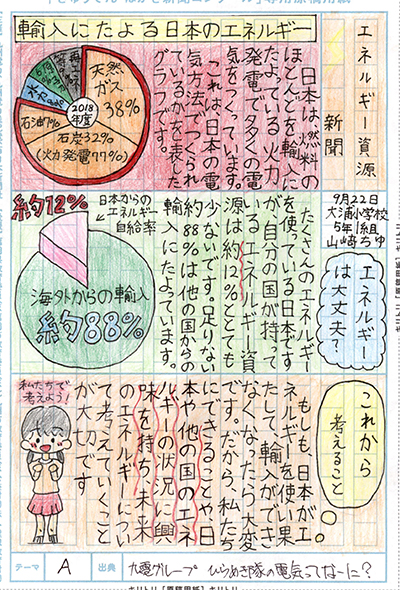 エネルギー資源
新聞
9月22日
大浦小学校
5年1組
山﨑ちゆ
輸入にたよる日本のエネルギー
日本は、燃料の
ほとんどを輸入に
たよっている火力
発電で多くの電
気をつくっています。
これは、日本の電
気方法でつくられ
ているかを表した
グラフです。
天然
ガス
38%
石炭32%
(火力発電77%)
石油7%
水力
2018
年度
エネルギー
は大丈夫?
たくさんのエネルギー
を使っている日本です
が、自分の国が持って
いるエネルギー資
源は約12%ととても
少ないです。足りない
約88%は他の国からの
輸入にたよっています。
約12%
日本からの
エネルギー
自給率
海外からの輸入
約88%
これから
考えること
もしも、日本がエ
ネルギーを使い果
たして、輸入ができ
なくなったら大変
です。だから、私たち
にできることや日
本や他の国のエネ
ルギーの状況に興
味を持ち、未来
のエネルギーについ
て考えていくこと
が大切です
私たちで
考えよう!
テーマ A 出典 九電グループ ひらめき隊の電気ってなーに?